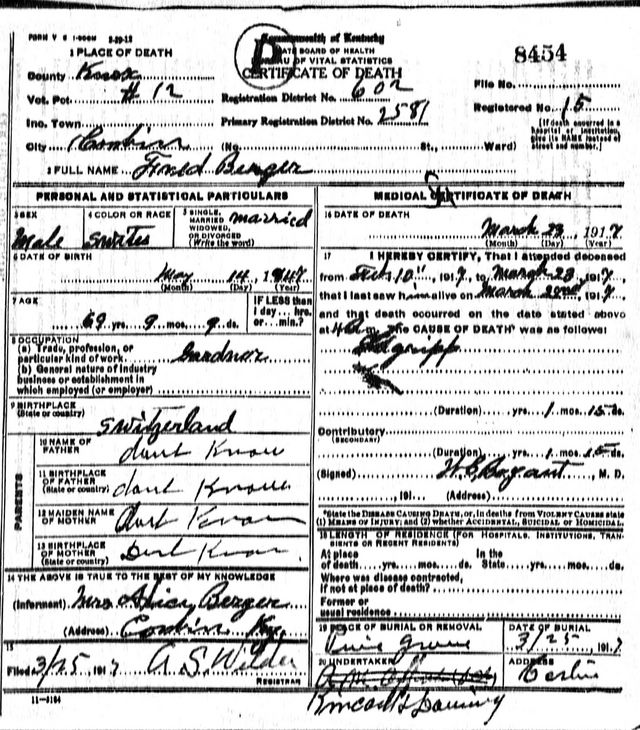 FORM V S 1-
Commonwealth of Kentucky
STATE BOARD OF HEALTH
BUREAU OF VITAL STATISTICS
CERTIFICATE OF DEATH
8454
1 PLACE OF DEATH
County Knox
Vot. Pct. #12
Inc. Town
City Corbin
Registration District No. 602
Primary Registration District No. 2581
(No. St., Ward)
File No.
Registered No. 15
[If death occurred in a hospital or institution, give its NAME instead of street and number.]
2 FULL NAME Fred Berger
PERSONAL AND STATISTICAL PARTICULARS
3 SEX
Male
4 COLOR OR RACE
5 SINGLE, MARRIED, WIDOWED, OR DIVORCED (Write the word)
married
6 DATE OF BIRTH
May 14, 1847
(Month) (Day) (Year)
7 AGE
69 yrs. 9 mos. 9 ds.
IF LESS than 1 day... hrs. or... min.?
8 OCCUPATION
(a) Trade, profession, or particular kind of work
Gardnar
(b) General nature of industry business or establishment in which employed (or employer)
9 BIRTHPLACE
(State or country)
Switzerland
PARENTS
10 NAME OF FATHER
dont Know
11 BIRTHPLACE OF FATHER (State or country)
dont Know
12 MAIDEN NAME OF MOTHER
dont Know
13 BIRTHPLACE OF MOTHER (State or country)
Dont Know
14 THE ABOVE IS TRUE TO THE BEST OF MY KNOWLEDGE
(Informant) Mrs Alice Berger
(Address) Corbin Ky.
15
Filed 3/25, 1917 A. S. Wilder
REGISTRAR
11-3184
MEDICAL CERTIFICATE OF DEATH
16 DATE OF DEATH
March 23, 1917
(Month) (Day) (Year)
17 I HEREBY CERTIFY, That I attended deceased
from Feb 10", 1917, to March 23, 1917,
that I last saw him alive on March 22nd, 1917,
and that death occurred on the date stated above
at m. The CAUSE OF DEATH* was as follows:
(Duration) yrs. 1 mos. 15 ds.
Contributory
(SECONDARY)
(Duration) yrs. 1 mos. 15 ds.
(Signed) Bryant, M. D.
, 191 (Address)
*State the DISEASE CAUSING DEATH, or, in deaths from VIOLENT CAUSES state (1) MEANS OF INJURY; and (2) whether ACCIDENTAL, SUICIDAL or HOMICIDAL.
18 LENGTH OF RESIDENCE (FOR HOSPITALS, INSTITUTIONS, TRANSIENTS OR RECENT RESIDENTS)
At place of death yrs. mos. ds. In the State yrs. mos. ds.
Where was disease contracted, if not at place of death?
Former or usual residence
19 PLACE OF BURIAL OR REMOVAL
Pine Grove
DATE OF BURIAL
3/25, 1917
20 UNDERTAKER
ADDRESS
Corbin